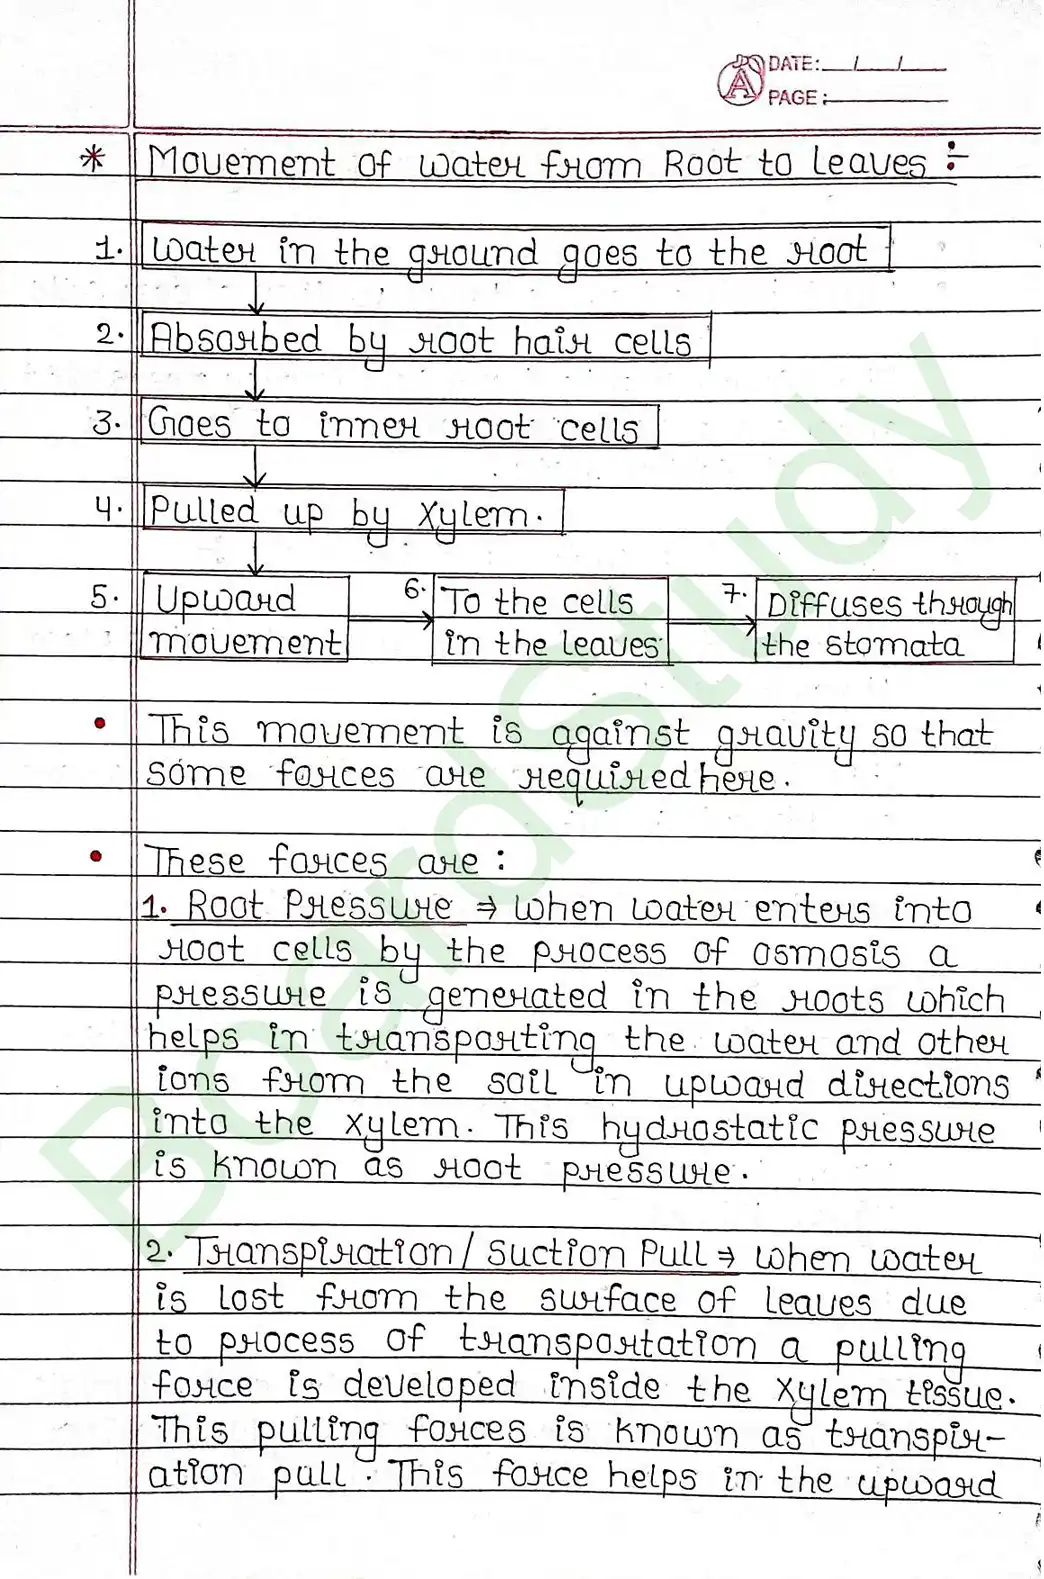 DATE: / /
PAGE:
* Movement of water from Root to leaves :-
1. Water in the ground goes to the root
2. Absorbed by root hair cells
3. Goes to inner root cells
4. Pulled up by Xylem.
5. Upward movement 6. To the cells in the leaves 7. Diffuses through the stomata
• This movement is against gravity so that
some forces are required here.
• These forces are :
1. Root Pressure ⇒ when water enters into
root cells by the process of osmosis a
pressure is generated in the roots which
helps in transporting the water and other
ions from the soil in upward directions
into the Xylem. This hydrostatic pressure
is known as root pressure.
2. Transpiration / Suction Pull ⇒ when water
is lost from the surface of leaves due
to process of transportation a pulling
force is developed inside the Xylem tissue.
This pulling forces is known as transpir-
ation pull. This force helps in the upward
BoardStudy